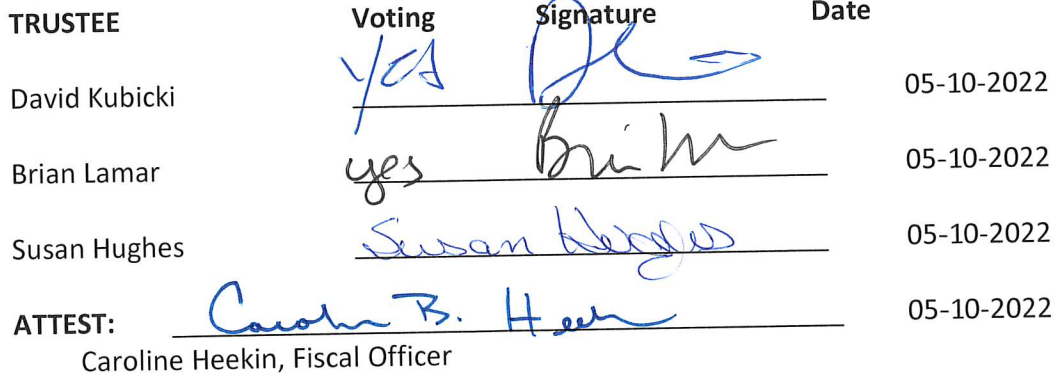 TRUSTEE Voting Signature Date
David Kubicki yes 05-10-2022
Brian Lamar yes Brian 05-10-2022
Susan Hughes Susan Hughes 05-10-2022
ATTEST: Caroline B. Heekin 05-10-2022
Caroline Heekin, Fiscal Officer